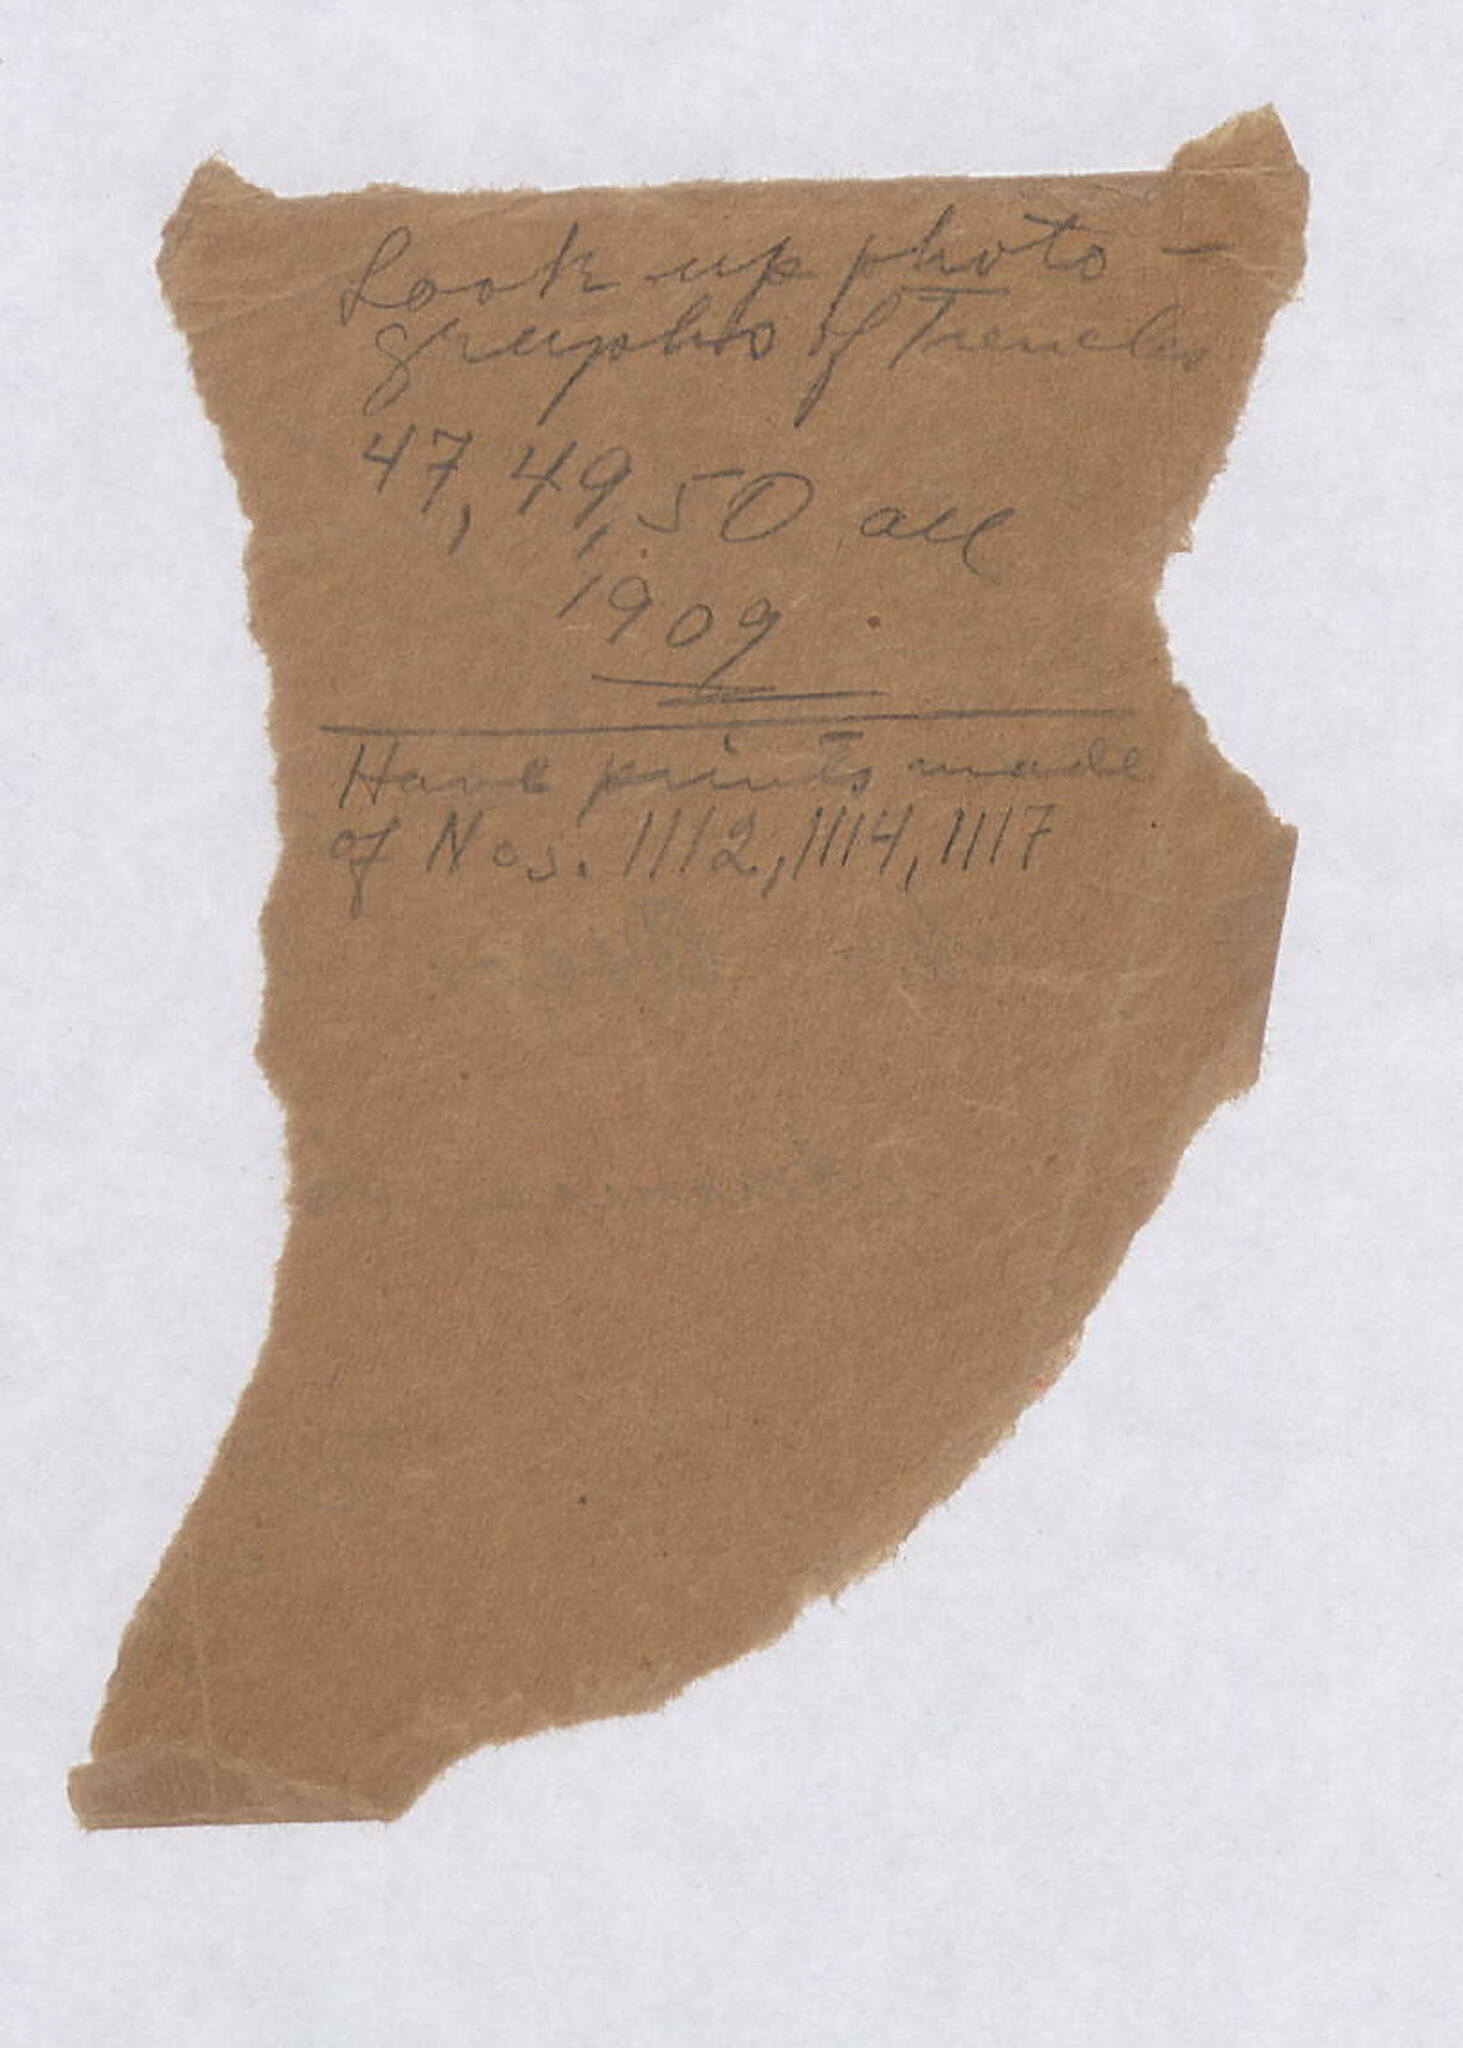 Look up photo -
graphs of Trenches
47, 49, 50 all
1909
Have prints made
of Nos. 1112, 1114, 1117